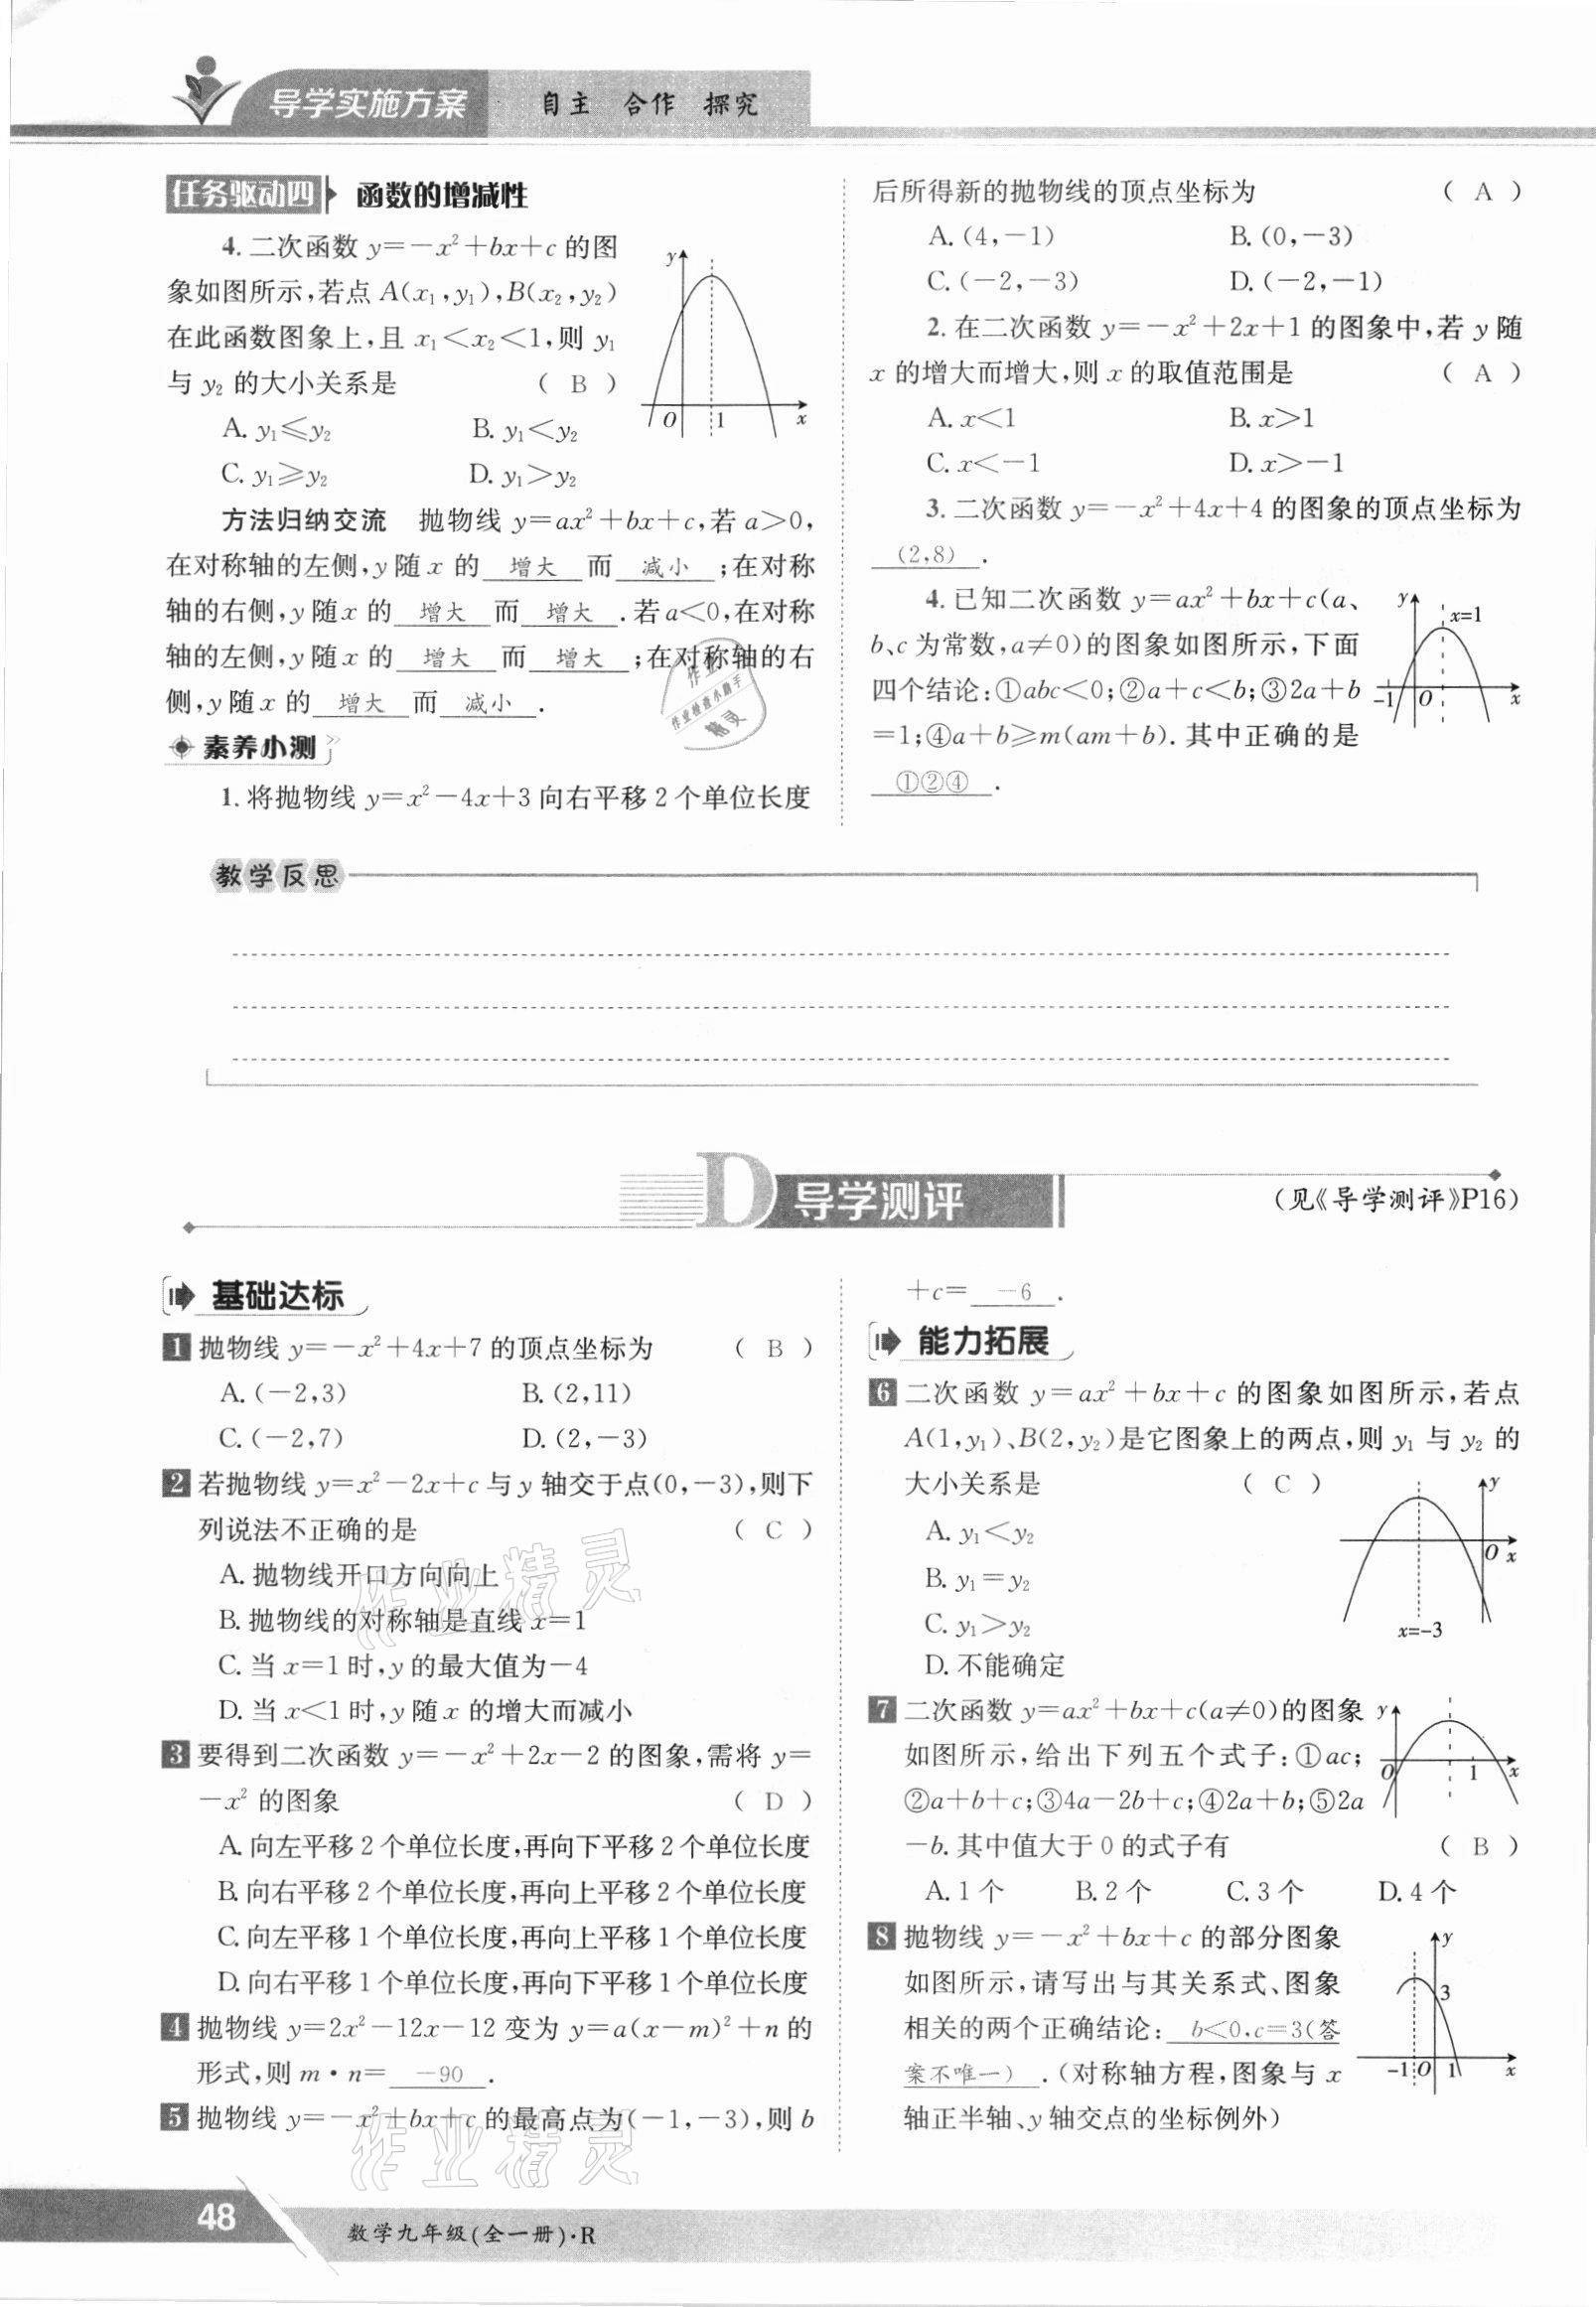 导学实施方案 自主 合作 探究
任务驱动四 函数的增减性
4. 二次函数 y=－x²＋bx＋c 的图
象如图所示,若点 A(x₁,y₁),B(x₂,y₂)
在此函数图象上,且 x₁＜x₂＜1,则 y₁
与 y₂ 的大小关系是 ( B )
A. y₁≤y₂ B. y₁＜y₂
C. y₁≥y₂ D. y₁＞y₂
y
O 1 x
方法归纳交流 抛物线 y=ax²＋bx＋c,若 a＞0,
在对称轴的左侧,y 随 x 的 增大 而 减小 ;在对称
轴的右侧,y 随 x 的 增大 而 增大 .若 a＜0,在对称
轴的左侧,y 随 x 的 增大 而 增大 ;在对称轴的右
侧,y 随 x 的 增大 而 减小 .
素养小测
1. 将抛物线 y=x²－4x＋3 向右平移 2 个单位长度
后所得新的抛物线的顶点坐标为 ( A )
A. (4,－1) B. (0,－3)
C. (－2,－3) D. (－2,－1)
2. 在二次函数 y=－x²＋2x＋1 的图象中,若 y 随
x 的增大而增大,则 x 的取值范围是 ( A )
A. x＜1 B. x＞1
C. x＜－1 D. x＞－1
3. 二次函数 y=－x²＋4x＋4 的图象的顶点坐标为
(2,8) .
4. 已知二次函数 y=ax²＋bx＋c(a、
b、c 为常数,a≠0)的图象如图所示,下面
四个结论:①abc＜0;②a＋c＜b;③2a＋b
=1;④a＋b≥m(am＋b). 其中正确的是
①②④ .
y x=1
-1 O x
作业
作业检查小助手
精灵
教学反思
D 导学测评
(见《导学测评》P16)
基础达标
1 抛物线 y=－x²＋4x＋7 的顶点坐标为 ( B )
A. (－2,3) B. (2,11)
C. (－2,7) D. (2,－3)
2 若抛物线 y=x²－2x＋c 与 y 轴交于点(0,－3),则下
列说法不正确的是 ( C )
A. 抛物线开口方向向上
B. 抛物线的对称轴是直线 x=1
C. 当 x=1 时,y 的最大值为－4
D. 当 x＜1 时,y 随 x 的增大而减小
3 要得到二次函数 y=－x²＋2x－2 的图象,需将 y=
－x² 的图象 ( D )
A. 向左平移 2 个单位长度,再向下平移 2 个单位长度
B. 向右平移 2 个单位长度,再向上平移 2 个单位长度
C. 向左平移 1 个单位长度,再向上平移 1 个单位长度
D. 向右平移 1 个单位长度,再向下平移 1 个单位长度
4 抛物线 y=2x²－12x－12 变为 y=a(x－m)²＋n 的
形式,则 m·n= －90 .
5 抛物线 y=－x²＋bx＋c 的最高点为(－1,－3),则 b
＋c= －6 .
能力拓展
6 二次函数 y=ax²＋bx＋c 的图象如图所示,若点
A(1,y₁)、B(2,y₂)是它图象上的两点,则 y₁ 与 y₂ 的
大小关系是 ( C )
A. y₁＜y₂
B. y₁=y₂
C. y₁＞y₂
D. 不能确定
y
O x
x=-3
7 二次函数 y=ax²＋bx＋c(a≠0)的图象
如图所示,给出下列五个式子:①ac;
②a＋b＋c;③4a－2b＋c;④2a＋b;⑤2a
－b. 其中值大于 0 的式子有 ( B )
A. 1 个 B. 2 个 C. 3 个 D. 4 个
y
O 1 x
8 抛物线 y=－x²＋bx＋c 的部分图象
如图所示,请写出与其关系式、图象
相关的两个正确结论: b＜0,c=3(答
案不唯一) .(对称轴方程,图象与 x
轴正半轴、y 轴交点的坐标例外)
y
3
-1 O 1 x
作业精灵
作业精灵
48
数学九年级(全一册)·R